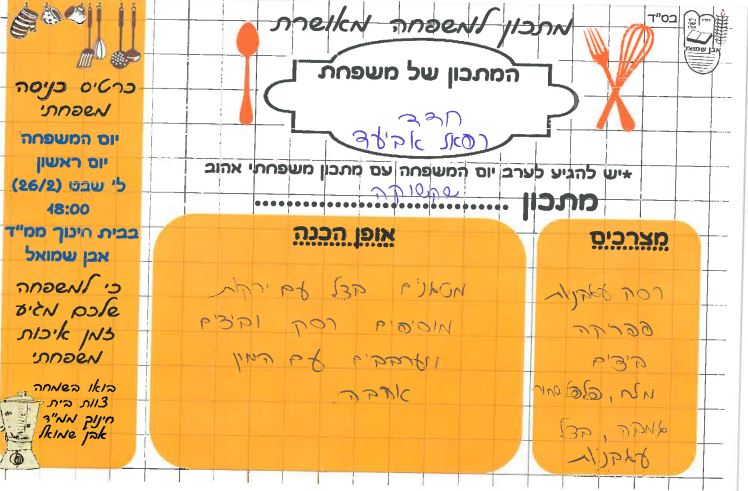 בס"ד
אבן שמואל
מתכון למשפחה מאושרת
המתכון של משפחת
חדד
רפאל אביעד
*יש להגיע לערב יום המשפחה עם מתכון משפחתי אהוב
מתכון שקשוקה
מצרכים
רסק עגבניות
פפריקה
ביצים
מלח, פלפל שחור
בצל
עגבניות
אופן הכנה
מטגנים בצל עם ירקות
מוסיפים רסק וביצים
ומערבבים עם המון
אהבה.
כרטיס כניסה
משפחתי
יום המשפחה
יום ראשון
ל' שבט (26/2)
18:00
בבית חינוך ממ"ד
אבן שמואל
כי למשפחה
שלכם מגיע
זמן איכות
משפחתי
בואו בשמחה
צוות בית
חינוך ממ"ד
אבן שמואל